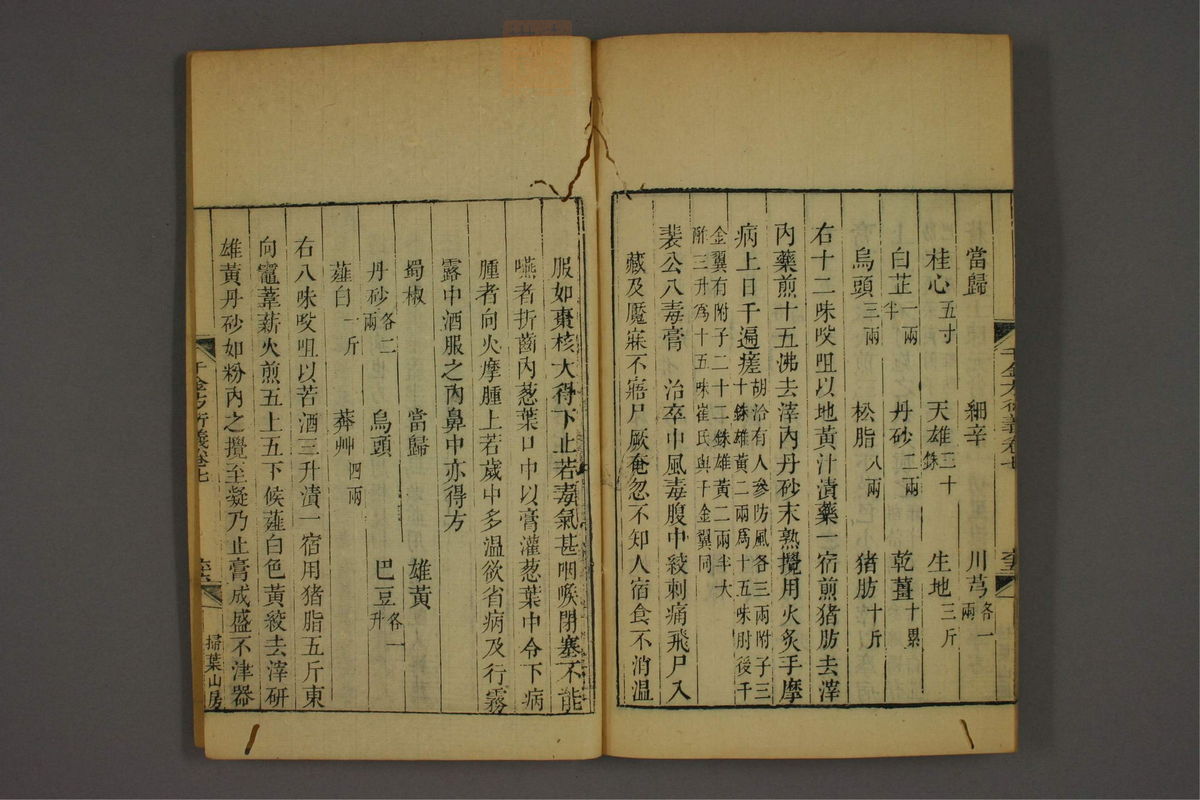 當歸 細辛 川芎各一兩
桂心五寸 天雄三十銖 生地三斤
白芷一兩半 丹砂二兩 乾薑十累
烏頭三兩 松脂八兩 猪肪十斤
右十二味㕮咀以地黃汁漬藥一宿煎猪肪去滓
內藥煎十五沸去滓內丹砂末熟攪用火炙手摩
病上日千遍瘥胡洽有人參防風各三兩附子三
十銖雄黃二兩爲十五味肘後千
金翼有附子二十二銖雄黃二兩半大
酢三升爲十五味崔氏與千金翼同
裴公八毒膏 治卒中風毒腹中絞刺痛飛尸入
藏及魘寐不寤尸厥奄忽不知人宿食不消溫
卷七
服如棗核大得下止若毒氣甚咽喉閉塞不能
嚥者折齒內葱葉口中以膏灌葱葉中令下病
腫者向火摩腫上若歲中多溫欲省病及行霧
露中酒服之內鼻中亦得方
蜀椒 當歸 雄黃
丹砂各二兩 烏頭 巴豆各一升
薤白一斤 莽艸四兩
右八味㕮咀以苦酒三升漬一宿用猪脂五斤東
向竈葦薪火煎五上五下候薤白色黃絞去滓研
雄黃丹砂如粉內之攪至凝乃止膏成盛不津器
千金方衍義卷七
掃葉山房